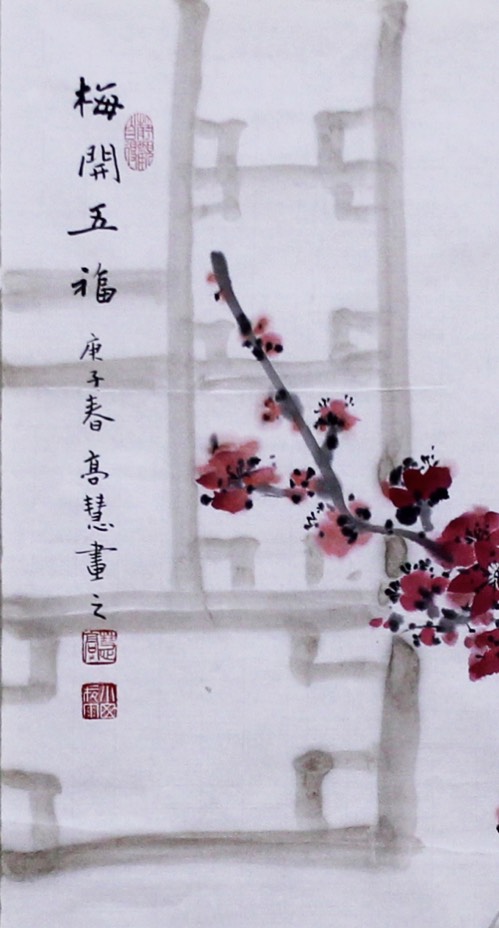 梅開五福
庚子春高慧畫之